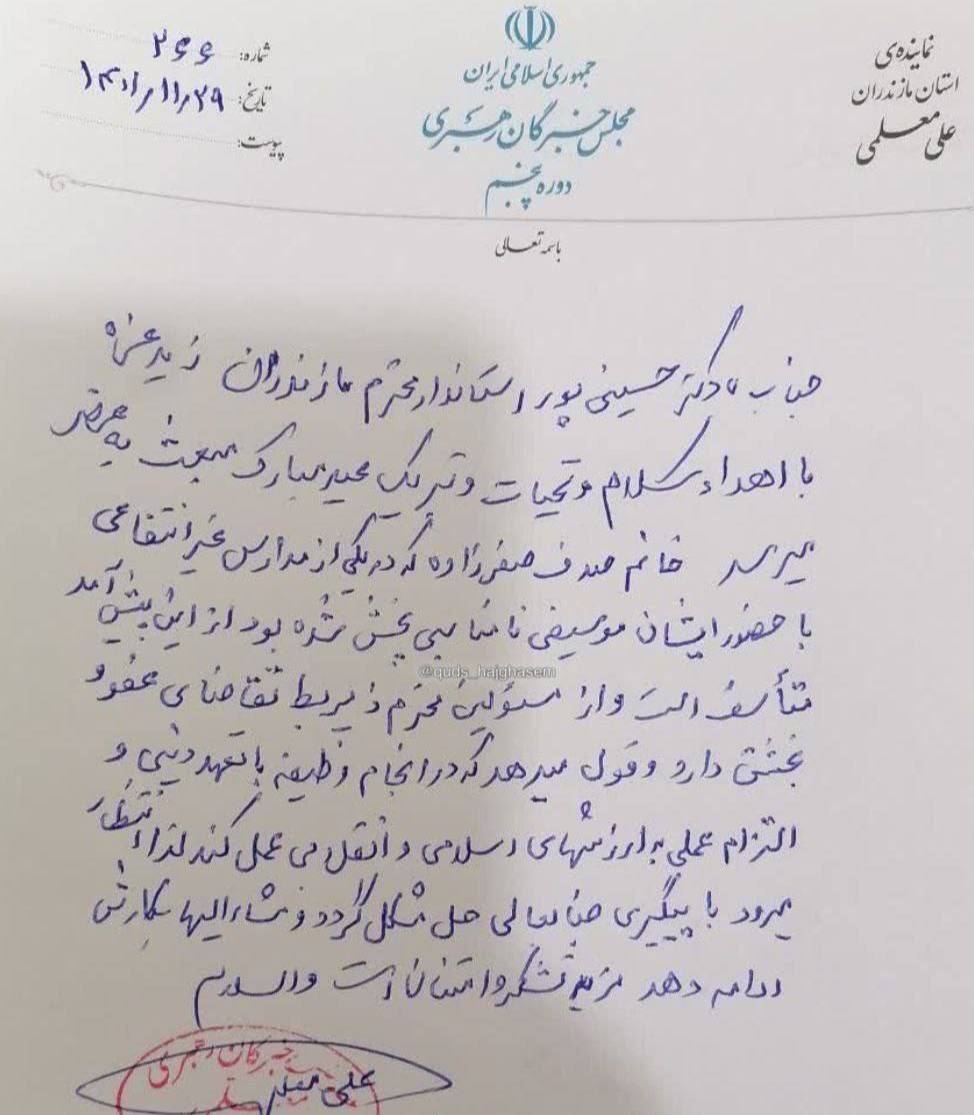 نماینده‌ی
استان مازندران
علی معلمی
جمهوری اسلامی ایران
مجلس خبرگان رهبری
دوره پنجم
شماره: ۲۶۶
تاریخ: ۱۴۰۱/۱۱/۲۹
پیوست:
باسمه تعالی
جناب دکتر حسینی پور استاندار محترم مازندران زید عزه
با اهداء سلام و تحیات و تبریک عید مبارک مبعث به عرض
میرسد خانم صدف صفرزاده که در یکی از مدارس غیر انتفاعی
با حضور ایشان موسیقی نامناسبی پخش شده بود از این پیش آمد
متأسف است و از مسؤلین محترم ذیربط تقاضای عفو و
بخشش دارد و قول میدهد که در انجام وظیفه با تعهد دینی و
التزام عملی به ارزشهای اسلامی و انقلابی عمل کند لذا انتظار
میرود با پیگیری جنابعالی حل مشکل گردد و مشارالیها بکارش
ادامه دهد مزید تشکر و امتنان است والسلام
@quds_hajghasem
خبرگان رهبری
علی معلمی